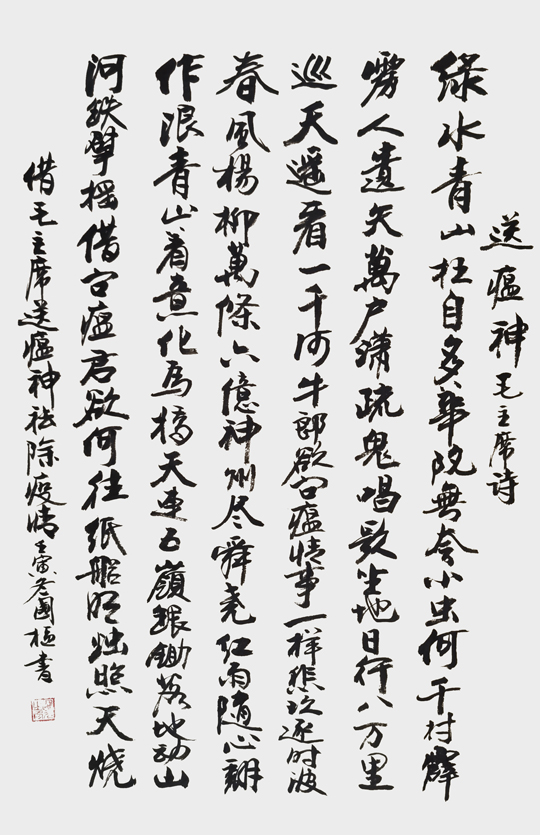 送瘟神毛主席诗
綠水青山枉自多華陀無奈小虫何千村薜
荔人遺矢萬户瀟疏鬼唱歌坐地日行八万里
巡天遥看一千河牛郎欲问瘟情事一样悲欢逐时波
春風楊柳萬條六億神州尽舜尧红雨随心翻
作浪青山着意化为橋天连五嶺銀鋤落地动山
河鉄臂摇借问瘟君欲何往纸船明烛照天烧
借毛主席送瘟神祛除疫情壬寅冬國書